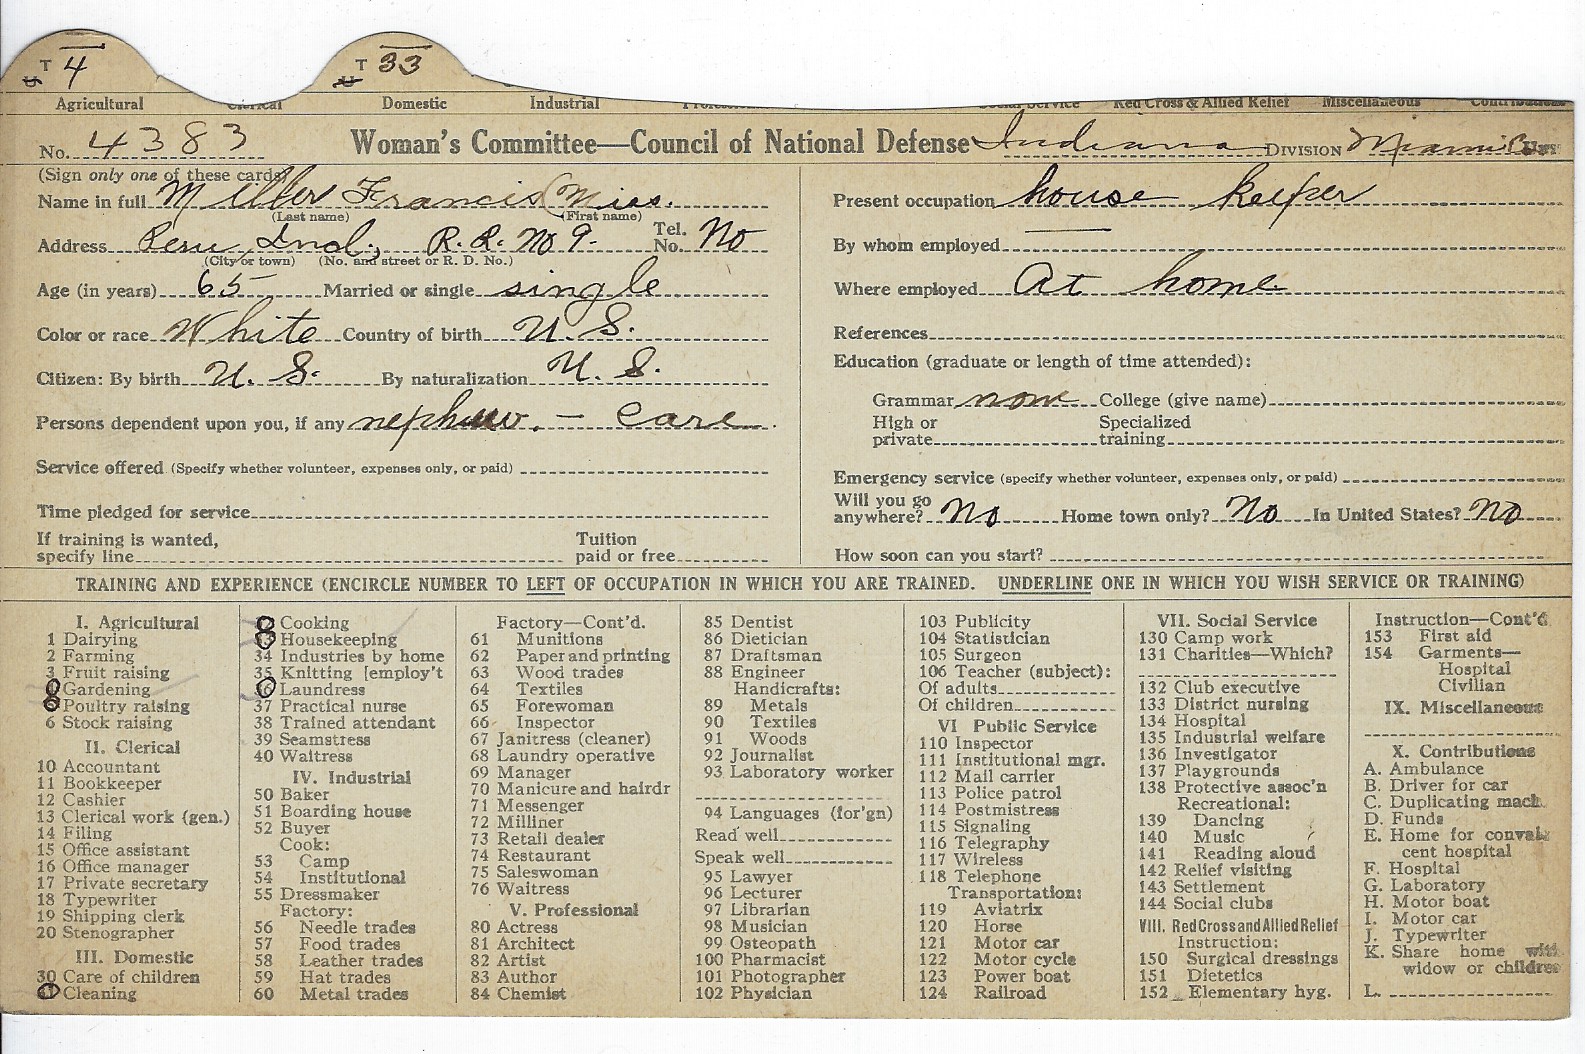 T 4 T 33
Agricultural Clerical Domestic Industrial Social Service Red Cross & Allied Relief Miscellaneous Contributions
No. 4383 Woman's Committee—Council of National Defense Indiana DIVISION Miami
(Sign only one of these cards)
Name in full Miller Francis (Miss.
(Last name) (First name)
Address Peru Ind., R.R. No 9. Tel. No. No
(City or town) (No. and street or R. D. No.)
Age (in years) 65 Married or single single
Color or race White Country of birth U. S.
Citizen: By birth U. S. By naturalization U. S.
Persons dependent upon you, if any nephew. — Care
Service offered (Specify whether volunteer, expenses only, or paid)
Time pledged for service
If training is wanted, specify line Tuition paid or free
Present occupation house keeper
By whom employed —
Where employed At home
References
Education (graduate or length of time attended):
Grammar none College (give name)
High or private Specialized training
Emergency service (specify whether volunteer, expenses only, or paid)
Will you go anywhere? No Home town only? No In United States? No
How soon can you start?
TRAINING AND EXPERIENCE (ENCIRCLE NUMBER TO LEFT OF OCCUPATION IN WHICH YOU ARE TRAINED. UNDERLINE ONE IN WHICH YOU WISH SERVICE OR TRAINING)
I. Agricultural
1 Dairying
2 Farming
3 Fruit raising
Gardening
Poultry raising
6 Stock raising
II. Clerical
10 Accountant
11 Bookkeeper
12 Cashier
13 Clerical work (gen.)
14 Filing
15 Office assistant
16 Office manager
17 Private secretary
18 Typewriter
19 Shipping clerk
20 Stenographer
III. Domestic
30 Care of children
Cleaning
Cooking
Housekeeping
34 Industries by home
35 Knitting [employ't
Laundress
37 Practical nurse
38 Trained attendant
39 Seamstress
40 Waitress
IV. Industrial
50 Baker
51 Boarding house
52 Buyer
Cook:
53 Camp
54 Institutional
55 Dressmaker
Factory:
56 Needle trades
57 Food trades
58 Leather trades
59 Hat trades
60 Metal trades
Factory—Cont'd.
61 Munitions
62 Paper and printing
63 Wood trades
64 Textiles
65 Forewoman
66 Inspector
67 Janitress (cleaner)
68 Laundry operative
69 Manager
70 Manicure and hairdr
71 Messenger
72 Milliner
73 Retail dealer
74 Restaurant
75 Saleswoman
76 Waitress
V. Professional
80 Actress
81 Architect
82 Artist
83 Author
84 Chemist
85 Dentist
86 Dietician
87 Draftsman
88 Engineer
Handicrafts:
89 Metals
90 Textiles
91 Woods
92 Journalist
93 Laboratory worker
94 Languages (for'gn)
Read well
Speak well
95 Lawyer
96 Lecturer
97 Librarian
98 Musician
99 Osteopath
100 Pharmacist
101 Photographer
102 Physician
103 Publicity
104 Statistician
105 Surgeon
106 Teacher (subject):
Of adults
Of children
VI Public Service
110 Inspector
111 Institutional mgr.
112 Mail carrier
113 Police patrol
114 Postmistress
115 Signaling
116 Telegraphy
117 Wireless
118 Telephone
Transportation:
119 Aviatrix
120 Horse
121 Motor car
122 Motor cycle
123 Power boat
124 Railroad
VII. Social Service
130 Camp work
131 Charities—Which?
132 Club executive
133 District nursing
134 Hospital
135 Industrial welfare
136 Investigator
137 Playgrounds
138 Protective assoc'n
Recreational:
139 Dancing
140 Music
141 Reading aloud
142 Relief visiting
143 Settlement
144 Social clubs
VIII. Red Cross and Allied Relief
Instruction:
150 Surgical dressings
151 Dietetics
152 Elementary hyg.
Instruction—Cont'd
153 First aid
154 Garments—
Hospital
Civilian
IX. Miscellaneous
X. Contributions
A. Ambulance
B. Driver for car
C. Duplicating mach.
D. Funds
E. Home for conval
cent hospital
F. Hospital
G. Laboratory
H. Motor boat
I. Motor car
J. Typewriter
K. Share home with
widow or children
L.